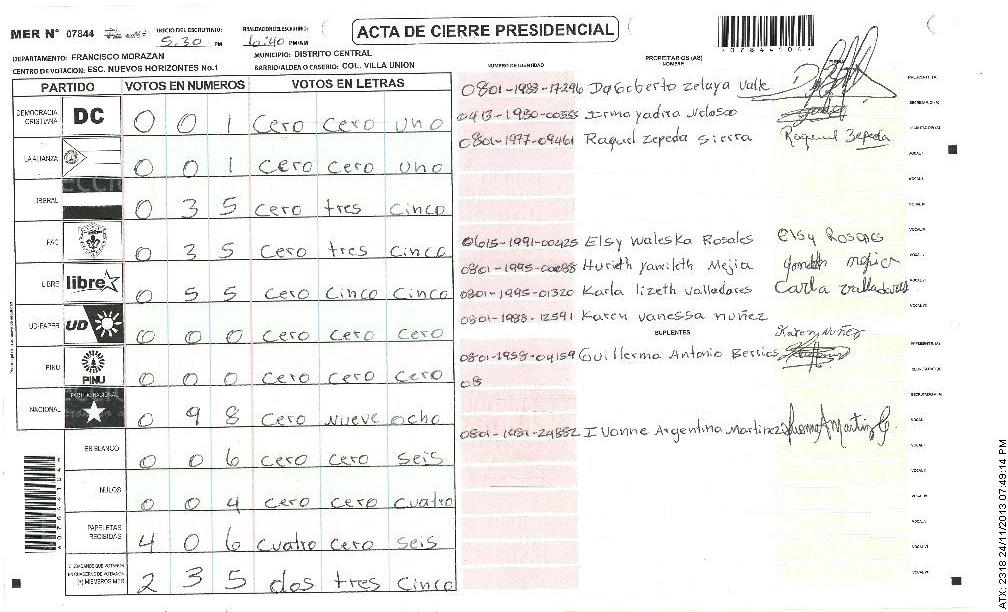 MER N° 07844
INICIO DEL ESCRUTINIO: 5:30 PM
6:40 PM/AM
ACTA DE CIERRE PRESIDENCIAL
DEPARTAMENTO: FRANCISCO MORAZAN
MUNICIPIO: DISTRITO CENTRAL
CENTRO DE VOTACION: ESC. NUEVOS HORIZONTES No.1
BARRIO/ALDEA O CASERIO: COL. VILLA UNION
PARTIDO VOTOS EN NUMEROS VOTOS EN LETRAS
DEMOCRACIA CRISTIANA DC 0 0 1 cero cero uno
LA ALIANZA 0 0 1 cero cero uno
LIBERAL 0 3 5 cero tres cinco
PAC 0 3 5 cero tres cinco
LIBRE libre 0 5 5 cero cinco cinco
UD-FAPER UD 0 0 0 cero cero cero
PINU PINU 0 0 0 cero cero cero
NACIONAL 0 9 8 cero nueve ocho
EN BLANCO 0 0 6 cero cero seis
NULOS 0 0 4 cero cero cuatro
PAPELETAS RECIBIDAS 4 0 6 cuatro cero seis
2 3 5 dos tres cinco
NUMERO DE IDENTIDAD
PROPIETARIOS (AS)
NOMBRE
0801-1983-17296 Dagoberto zelaya valle
0413-1980-00353 Irma yadira Veloso
0801-1977-09461 Raquel zepeda sierra Raquel Zepeda
0615-1991-00425 Elsy waleska Rosales Elsy Rosales
Yamileth Mejia
0801-1995-01320 Karla lizeth valladares Carla valladares
0801-1988-12591 Karen vanessa nuñez
SUPLENTES
Karen Nuñez
0801-1958-04159 Guillermo Antonio
08
0801-1981-24882 Ivonne Argentina Martinez
ATX: 2318 24/11/2013 07:49:14 PM